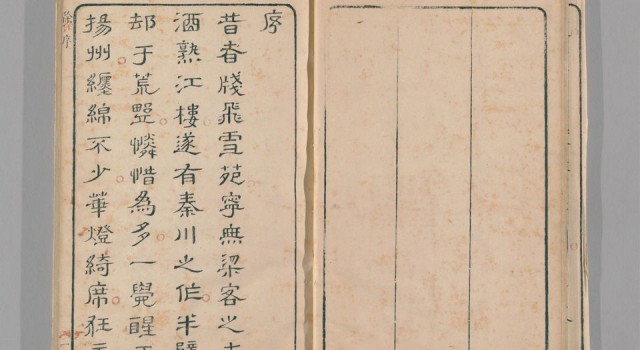 序
昔者牋飛雪苑寧無梁客之
酒熟江樓遂有秦川之作半
却于荒野憐惜為多一覺醒
揚州纏綿不少華燈綺席狂